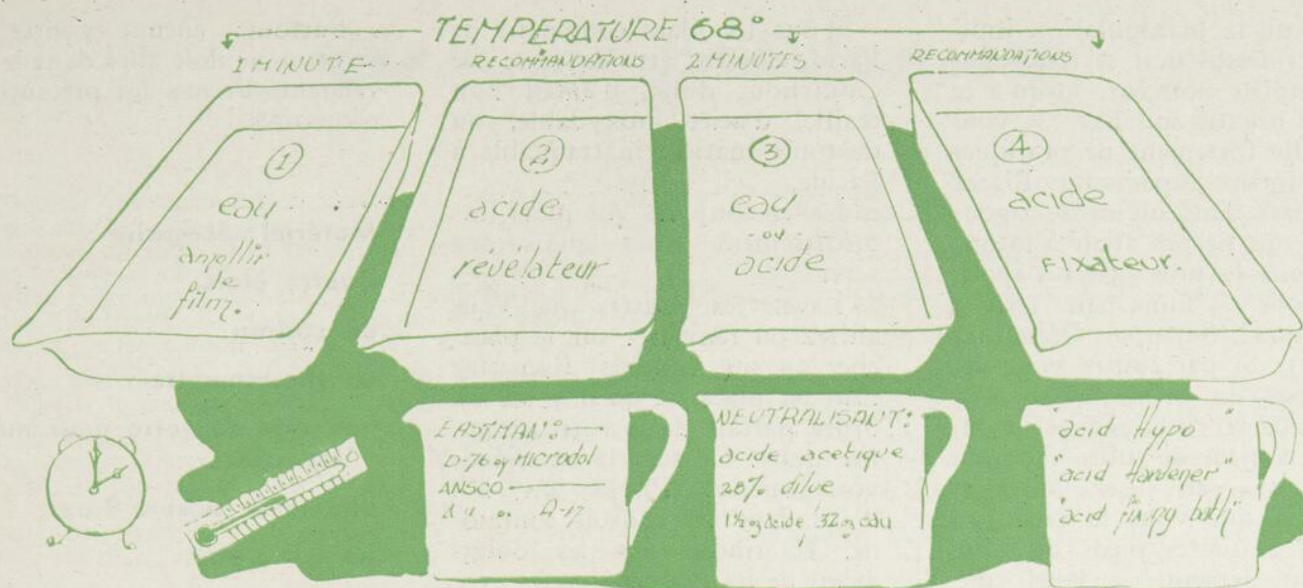 TEMPERATURE 68°
1 MINUTE
RECOMMANDATIONS
2 MINUTES
RECOMMANDATIONS
①
eau
amollir
le
film.
②
acide
révélateur
③
eau
ou
acide
④
acide
FIXATEUR
EASTMAN:
D-76 ou MICRODOL
ANSCO
ou A-17
NEUTRALISANT:
acide acetique
28% dilué
1½ oz acide 32 oz eau
"acid Hypo"
"acid Hardener"
"acid fixing bath"